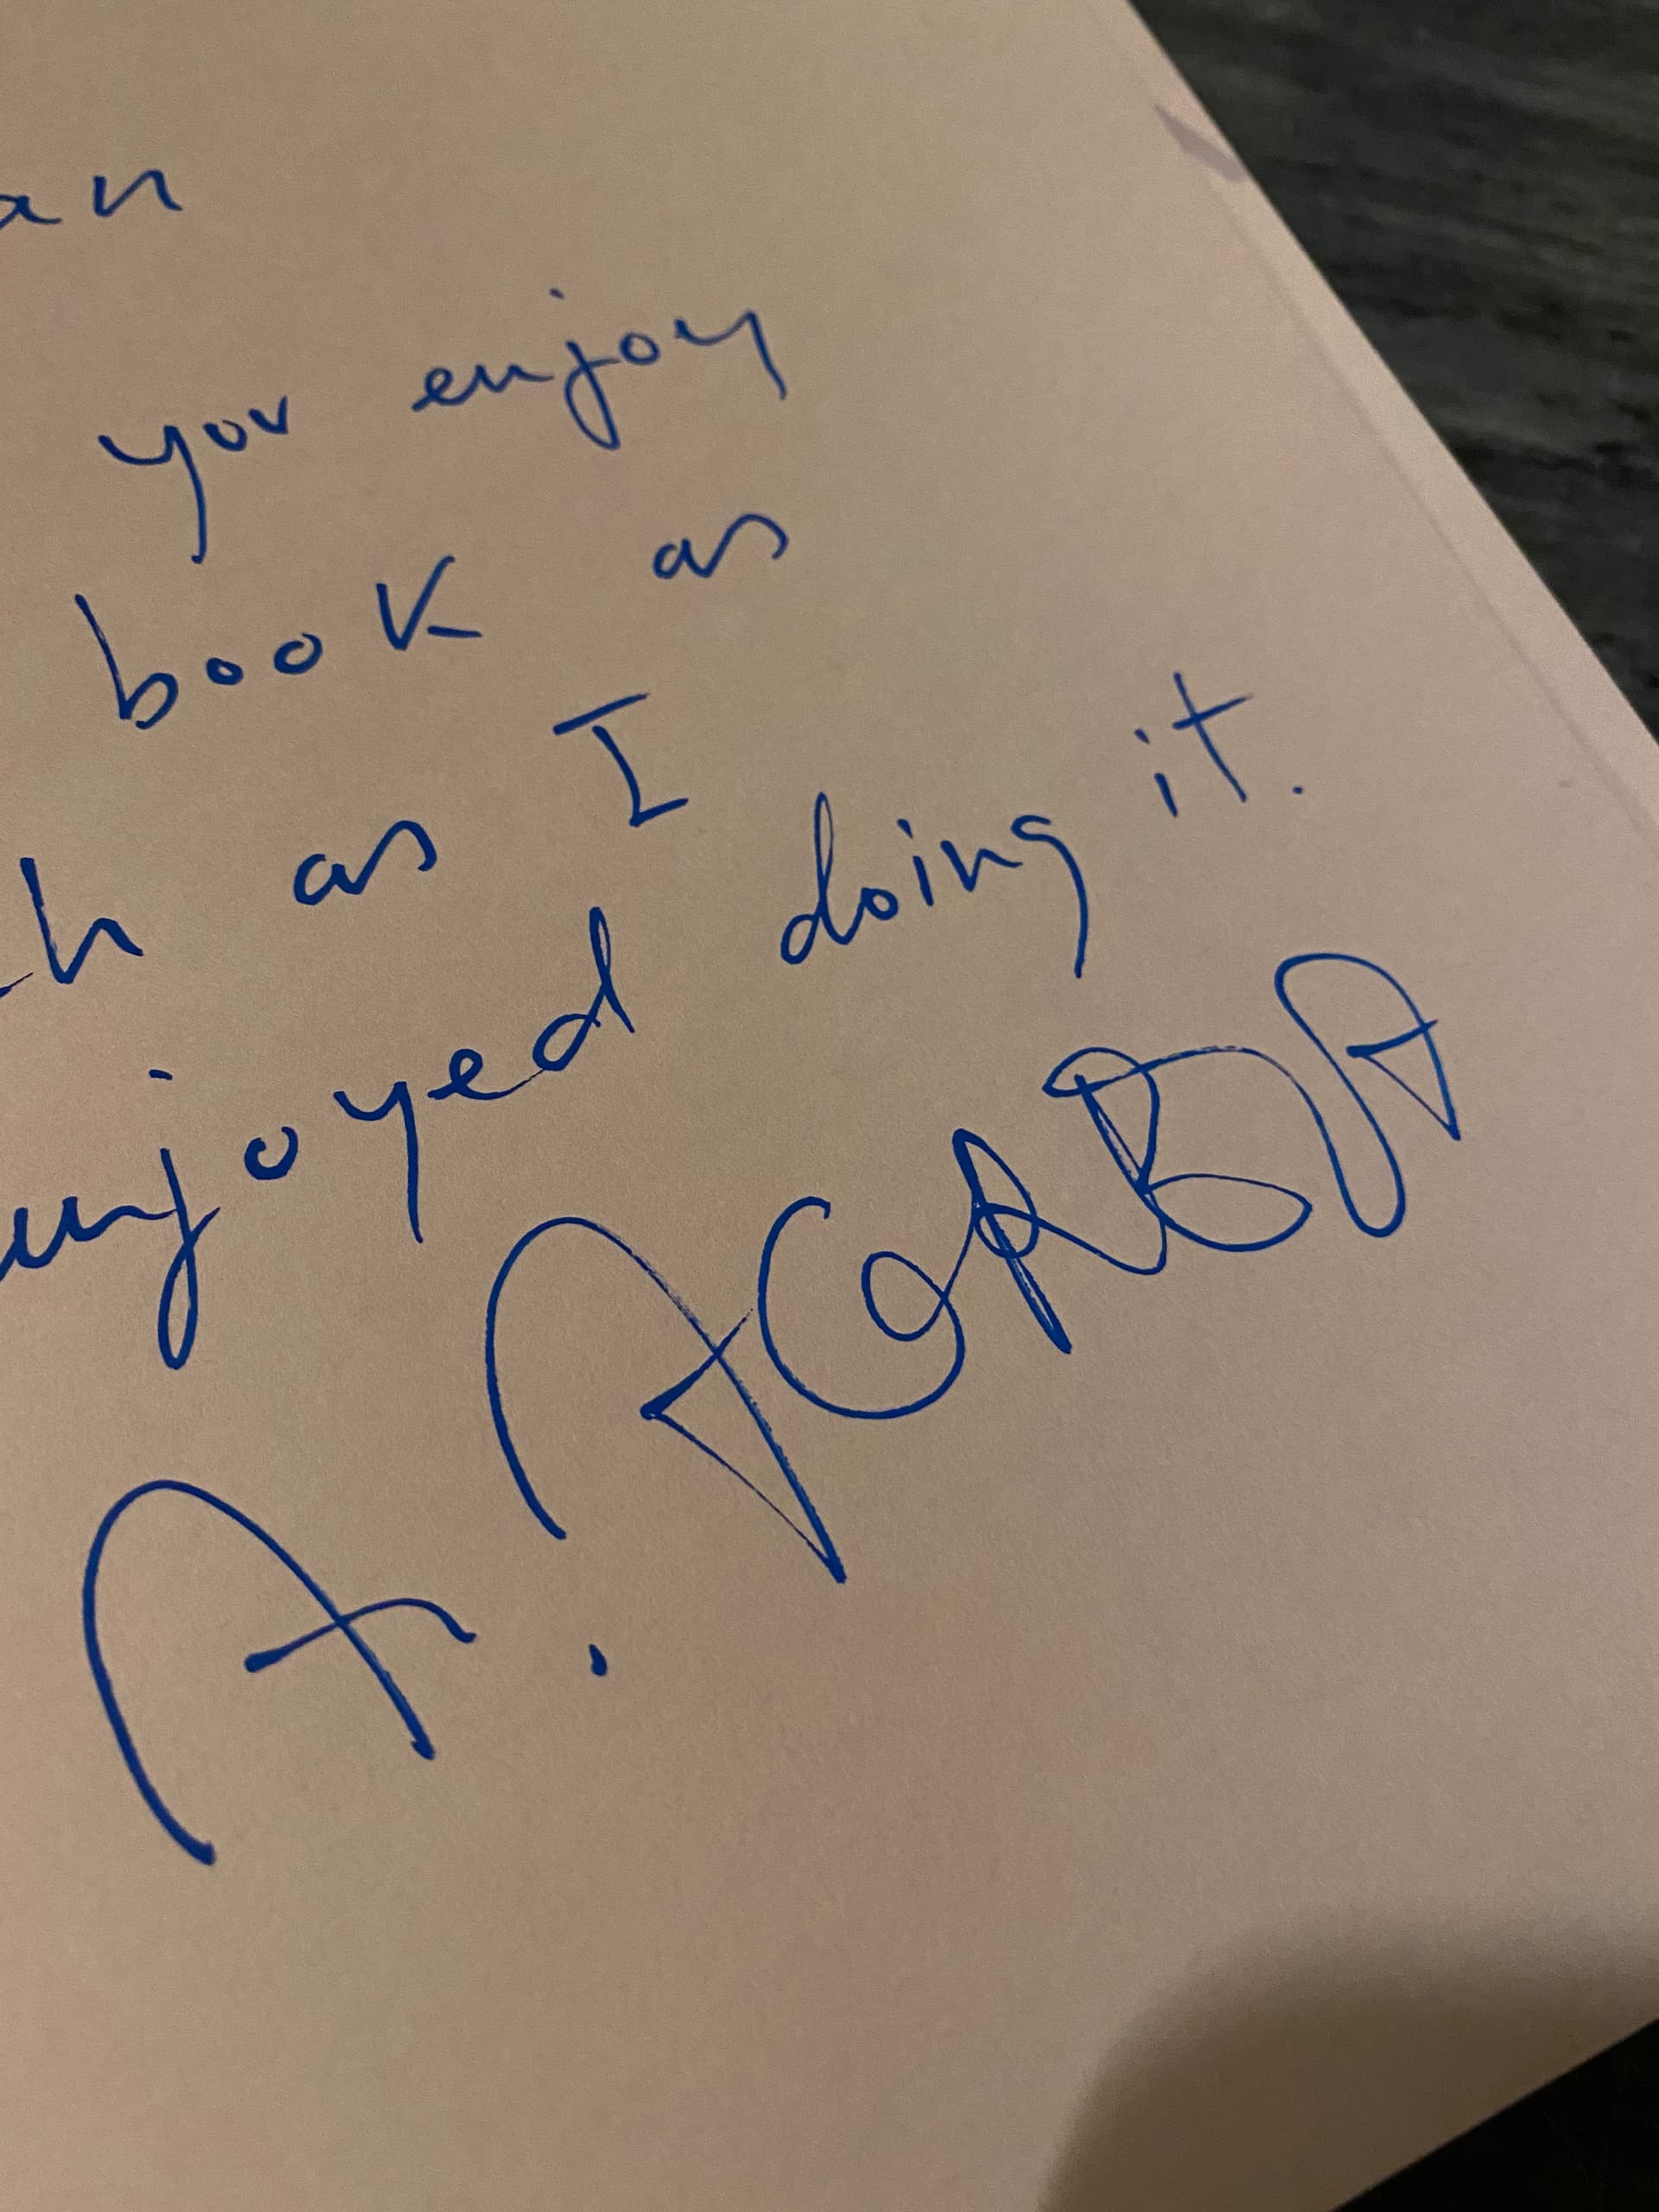 an
you enjoy
book as
h as I
enjoyed doing it.
A. AGABA